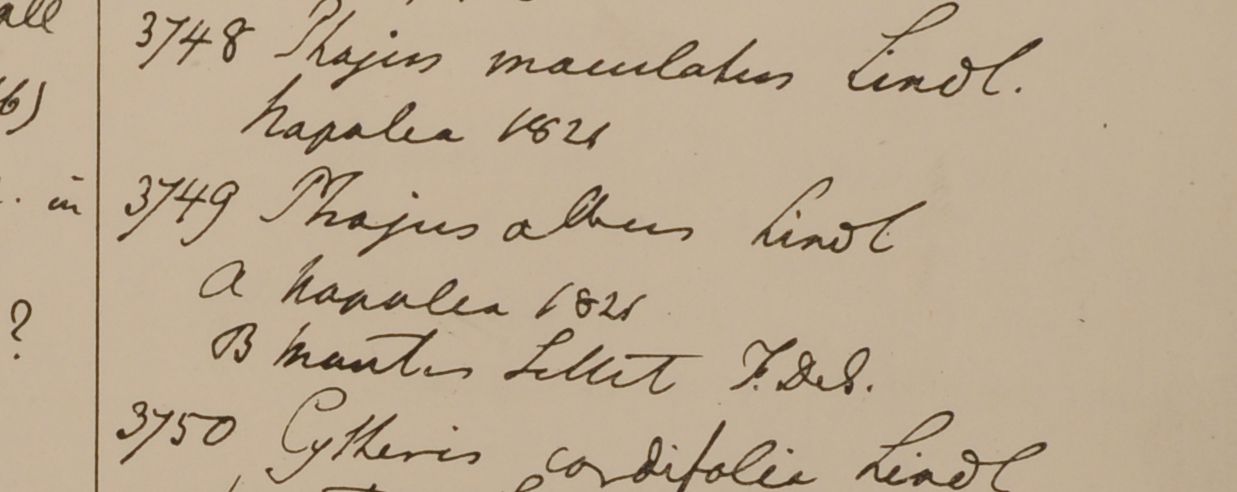 all
3748 Phajus maculatus Lindl.
6)
Napalea 1821
in
3749 Phajus albus Lindl
A Napalea 1821
?
B Montes Sillet F. De S.
3750 Cytheris cordifolia Lindl